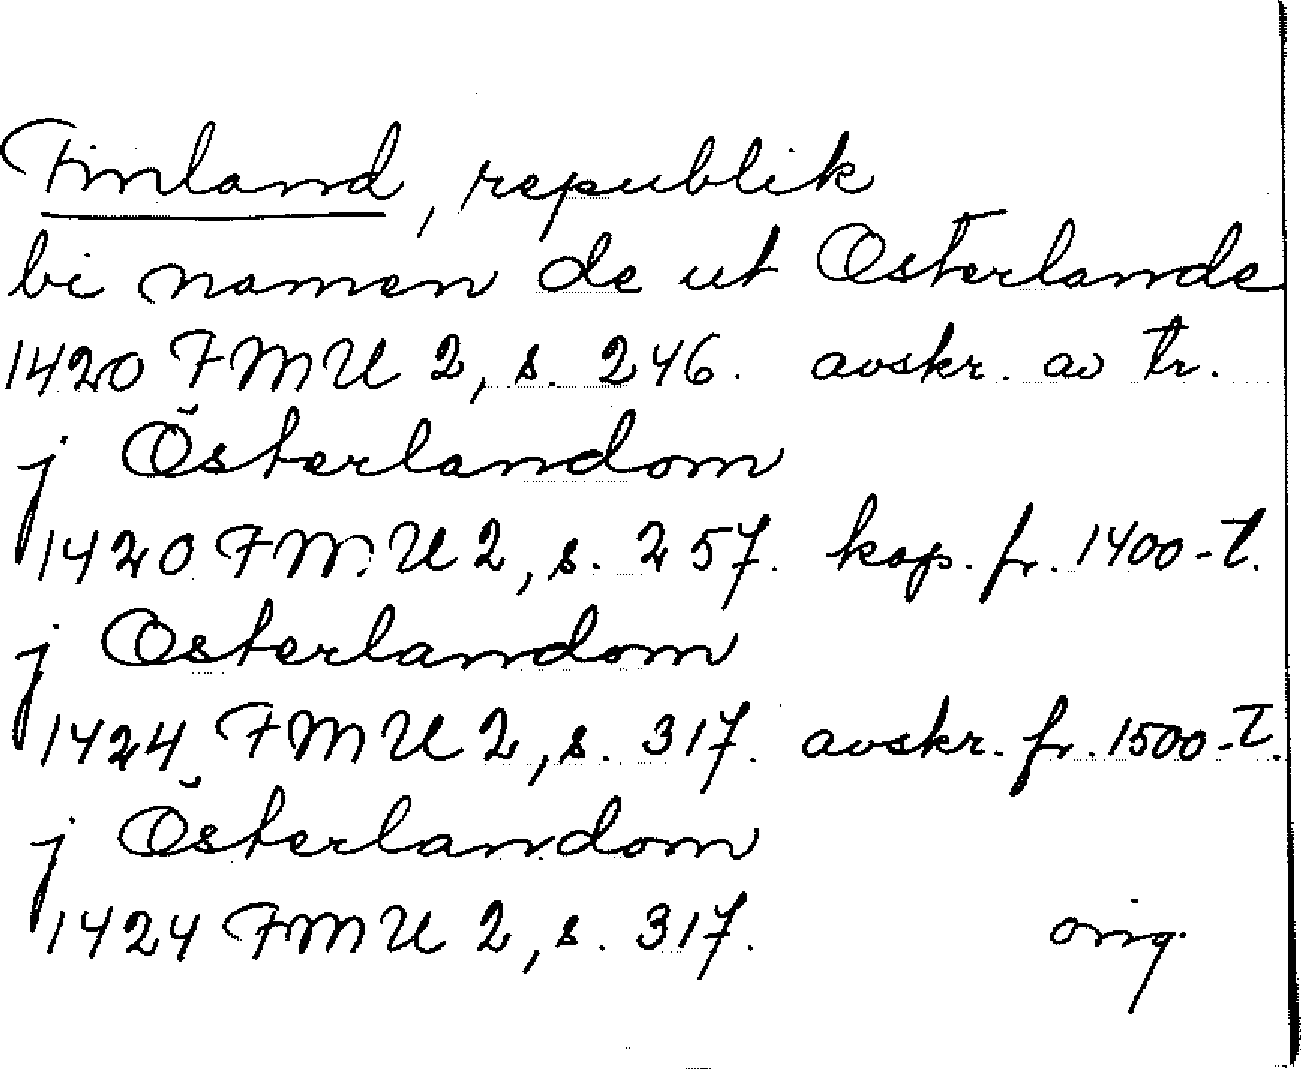 Finland, republik
bi namen de ut Osterlande
1420 FMU 2, s. 246. avskr. av tr.
j Österlandom
1420 FMU 2, s. 257. kop. fr. 1400-t.
j Osterlandom
1424 FMU 2, s. 317. avskr. fr. 1500-t.
j Österlandom
1424 FMU 2, s. 317. orig.